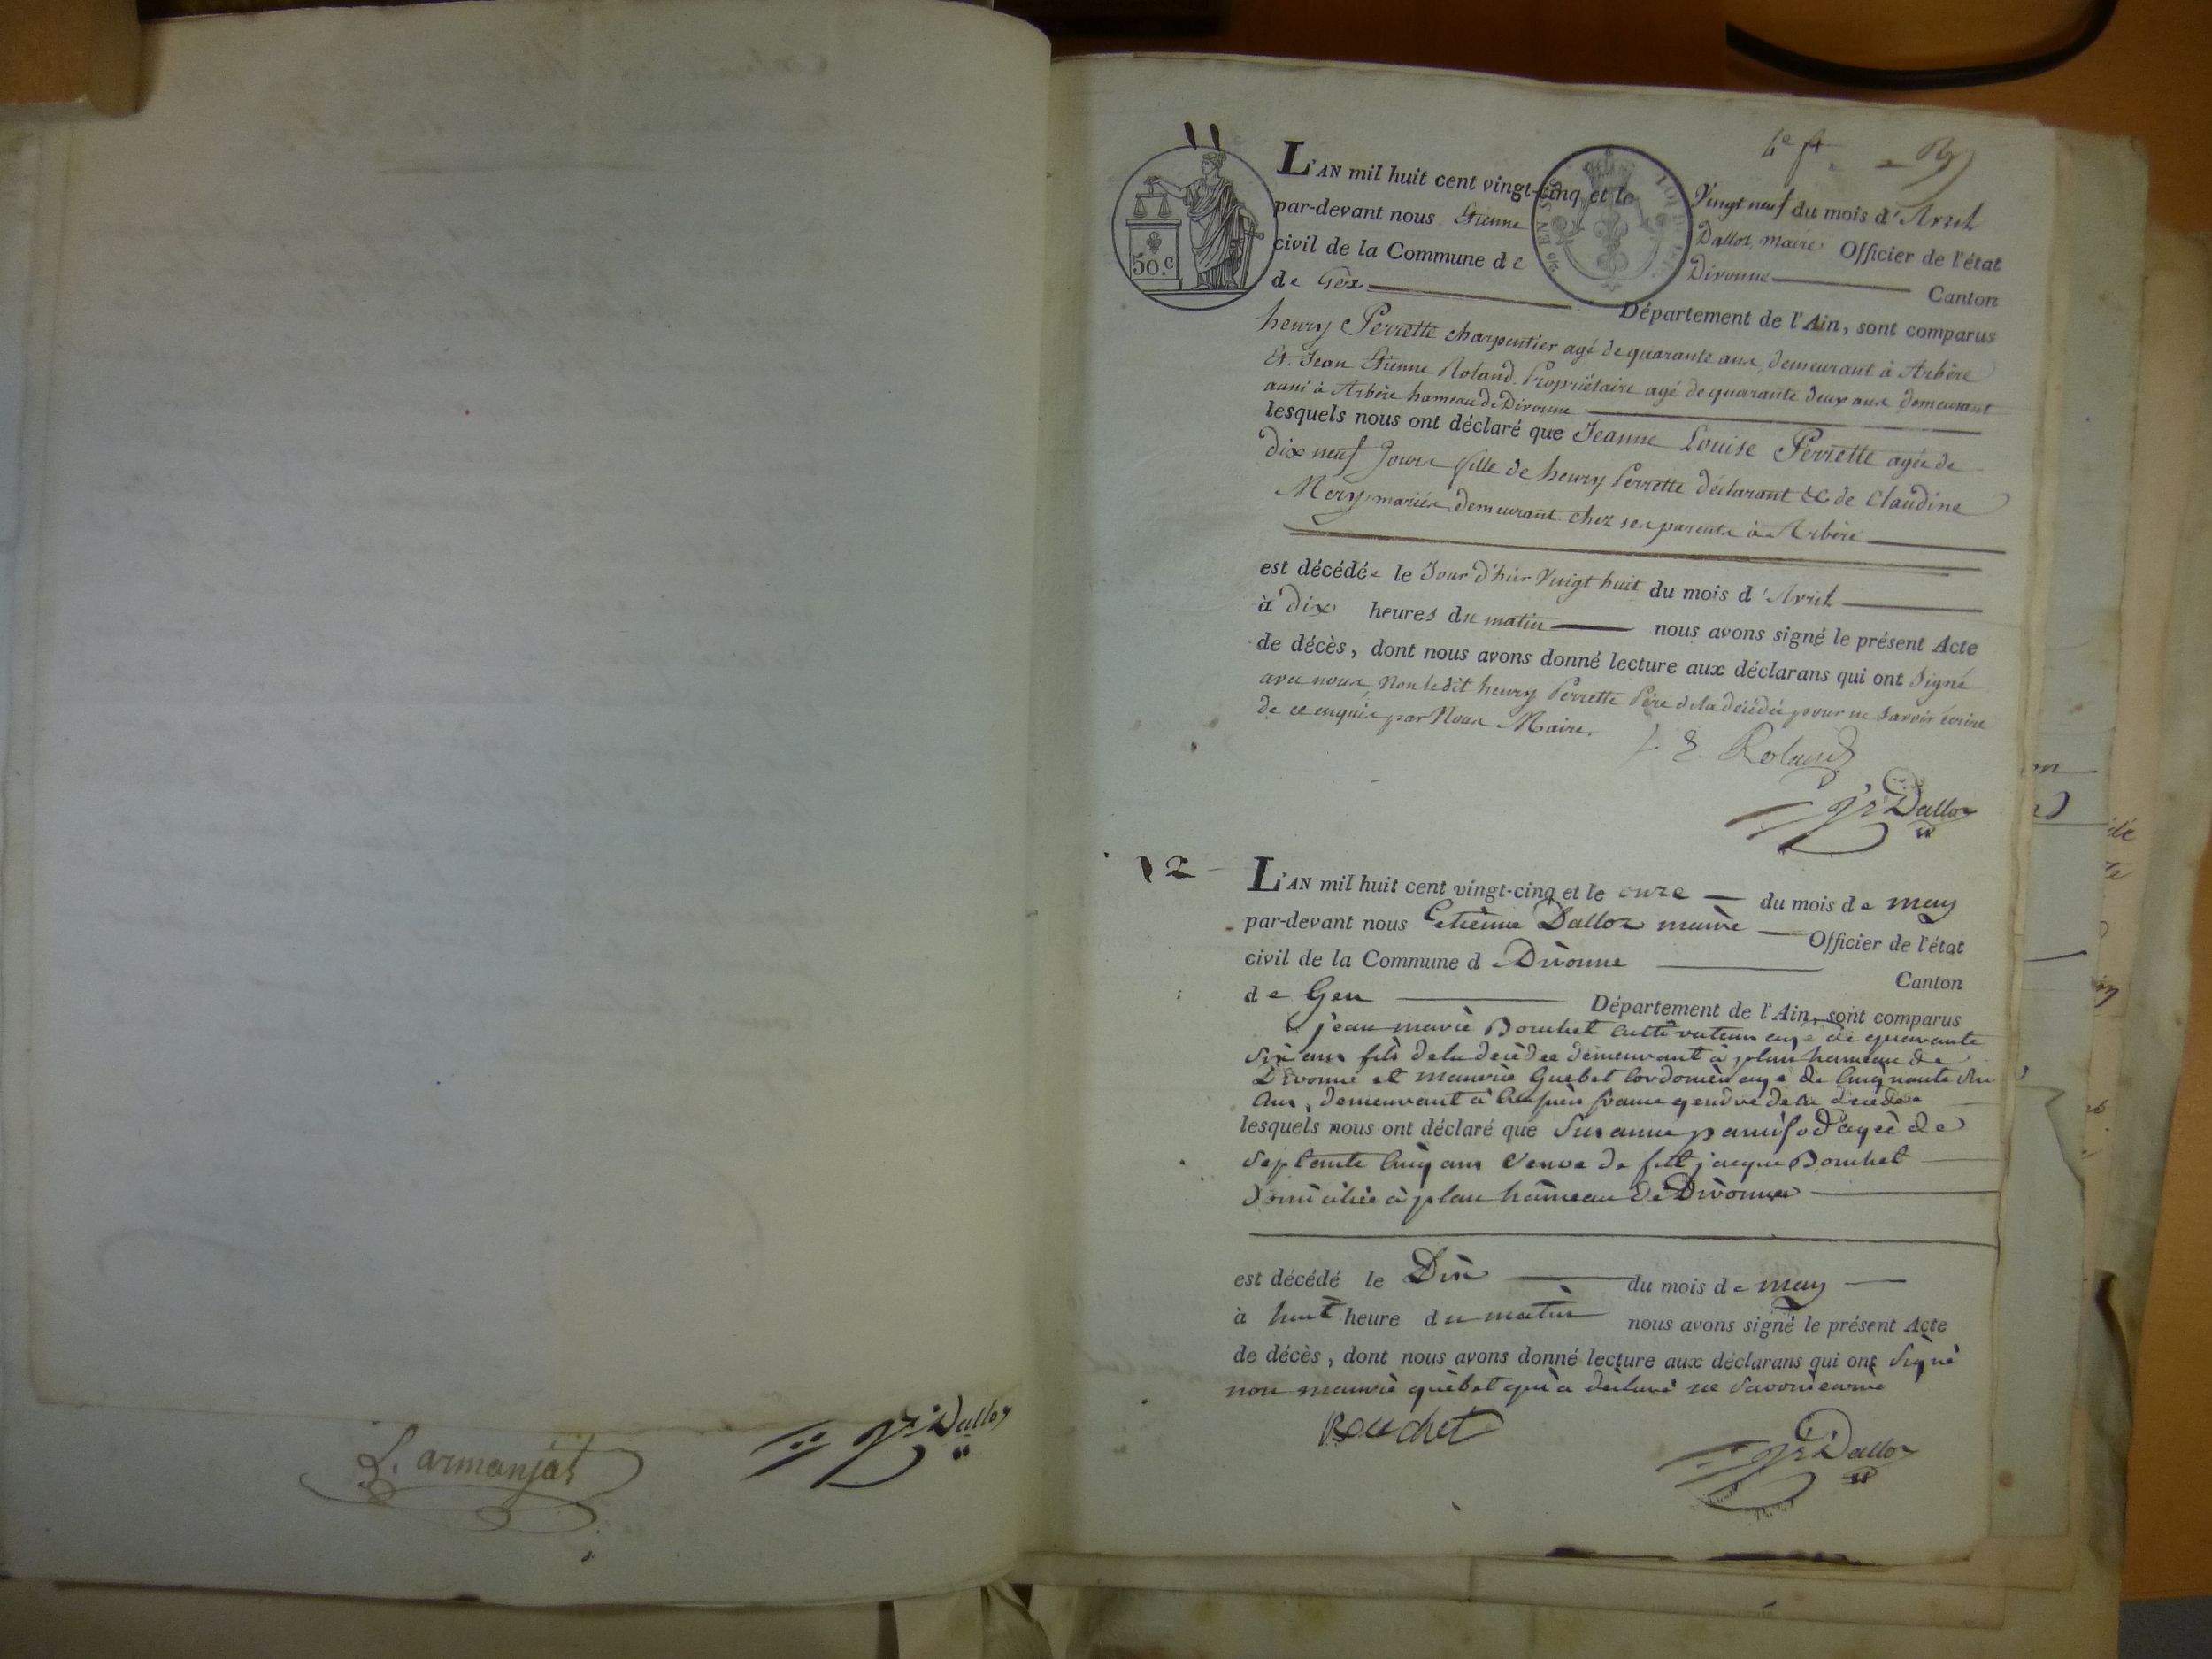 L. armanjat
Jr Dalloz
11
4e ft.
50.c
L'AN mil huit cent vingt-cinq et le Vingt neuf du mois d'Avril
par-devant nous Etienne Dalloz, maire Officier de l'état
civil de la Commune de Divonne Canton
de Gex Département de l'Ain, sont comparus
henry Perrette charpentier agé de quarante ans, demeurant à Arbère
Et Jean Etienne Roland Propriétaire agé de quarante deux ans demeurant
aussi à Arbère hameau de Divonne
lesquels nous ont déclaré que Jeanne Louise Perrette agée de
dix neuf Jours fille de henry Perrette déclarant & de Claudine
Mery, mariés demeurant chez ses parents à Arbère
est décédée le Jour d'hier Vingt huit du mois d'Avril
à dix heures du matin nous avons signé le présent Acte
de décès, dont nous avons donné lecture aux déclarans qui ont Signé
avec nous, Non le dit henry Perrette Père de la décédée pour ne savoir écrire
de ce enquis par Nous Maire.
J. E. Roland
Jr Dalloz
12
L'AN mil huit cent vingt-cinq et le onze du mois de may
par-devant nous Etienne Dalloz maire Officier de l'état
civil de la Commune d Divonne Canton
de Gex Département de l'Ain, sont comparus
jean marie Bouchet cultivateur agé de quarante
six ans fils de la décédée demeurant à plan hameau de
Divonne et maurice Quebet Cordonier agé de Cinquante
ans, demeurant à gendre de la décédée
lesquels nous ont déclaré que Susanne panisod agée de
septante Cinq ans Veuve de fut jacque Bouchet
Domiciliée à plan hameau de Divonne
est décédé le Dix du mois de may
à huit heure du matin nous avons signé le présent Acte
de décès, dont nous avons donné lecture aux déclarans qui ont signé
non maurice quebet qui a déclaré ne savoir écrire
Bouchet
Jr Dalloz